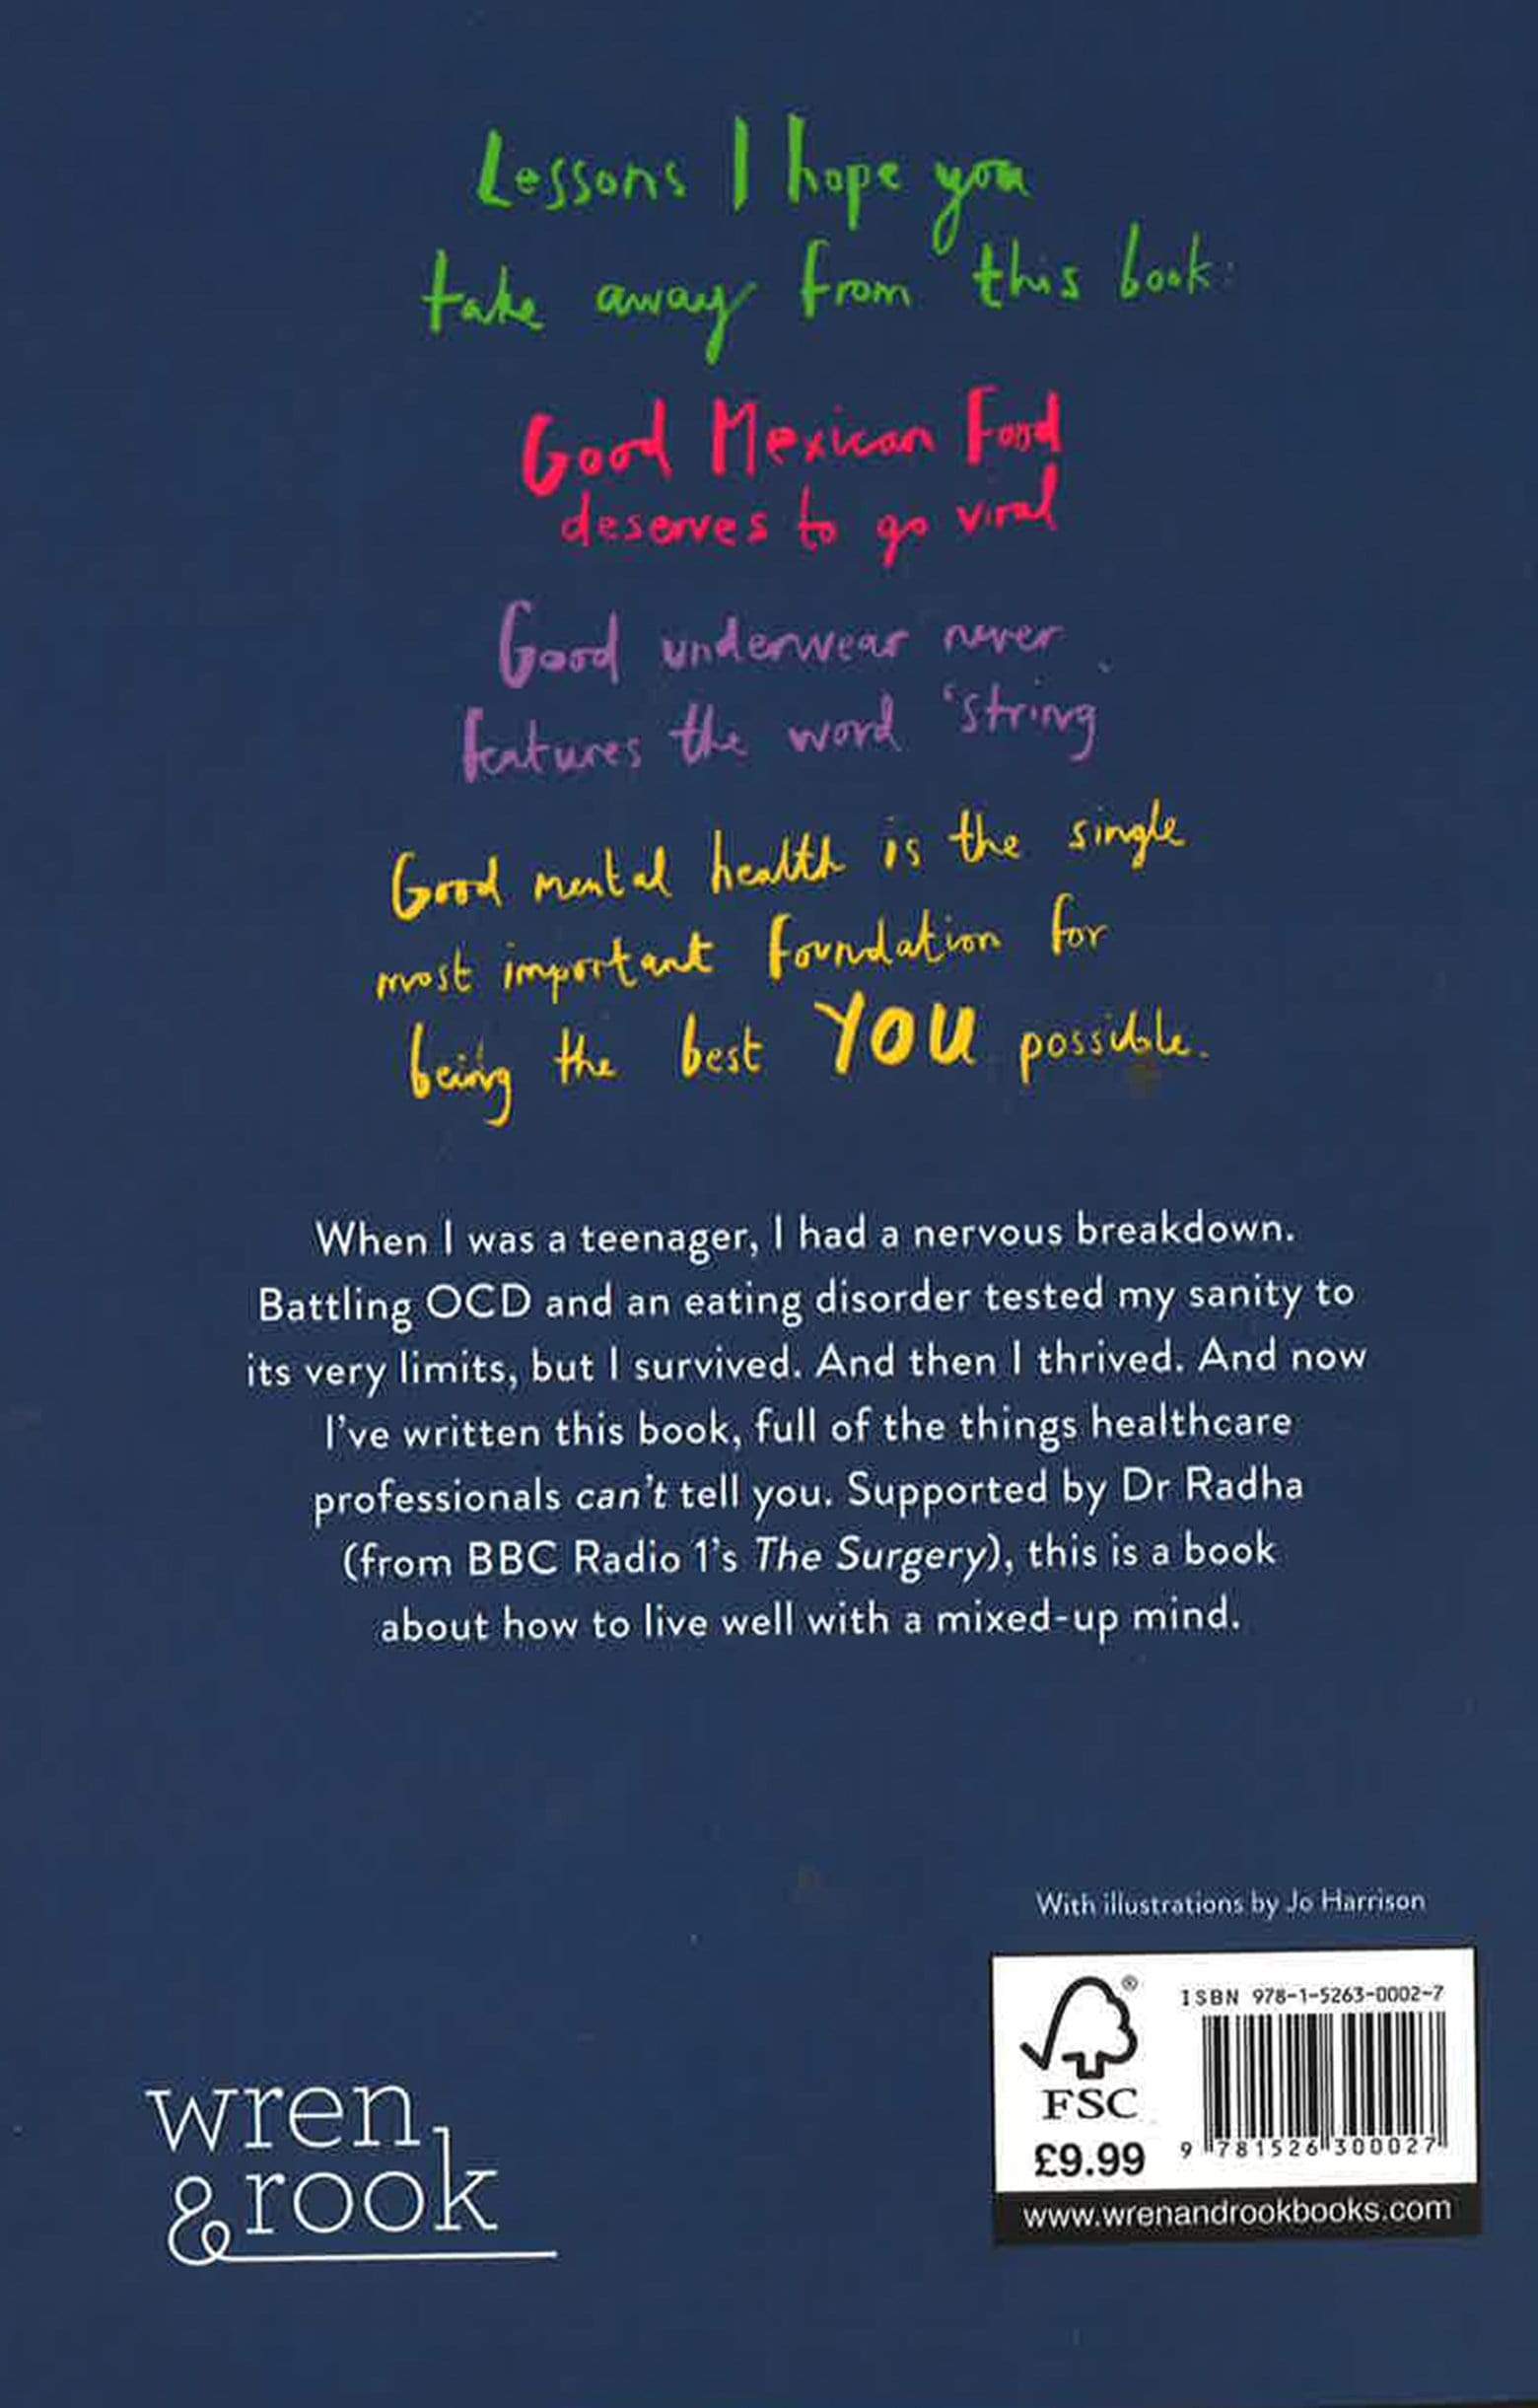 Lessons I hope you
take away from this book:
Good Mexican Food
deserves to go viral
Good underwear never
features the word 'string'
Good mental health is the single
most important foundation for
being the best YOU possible.
When I was a teenager, I had a nervous breakdown.
Battling OCD and an eating disorder tested my sanity to
its very limits, but I survived. And then I thrived. And now
I've written this book, full of the things healthcare
professionals can't tell you. Supported by Dr Radha
(from BBC Radio 1's The Surgery), this is a book
about how to live well with a mixed-up mind.
With illustrations by Jo Harrison
ISBN 978-1-5263-0002-7
FSC
£9.99
9 781526 300027
www.wrenandrookbooks.com
wren
&rook